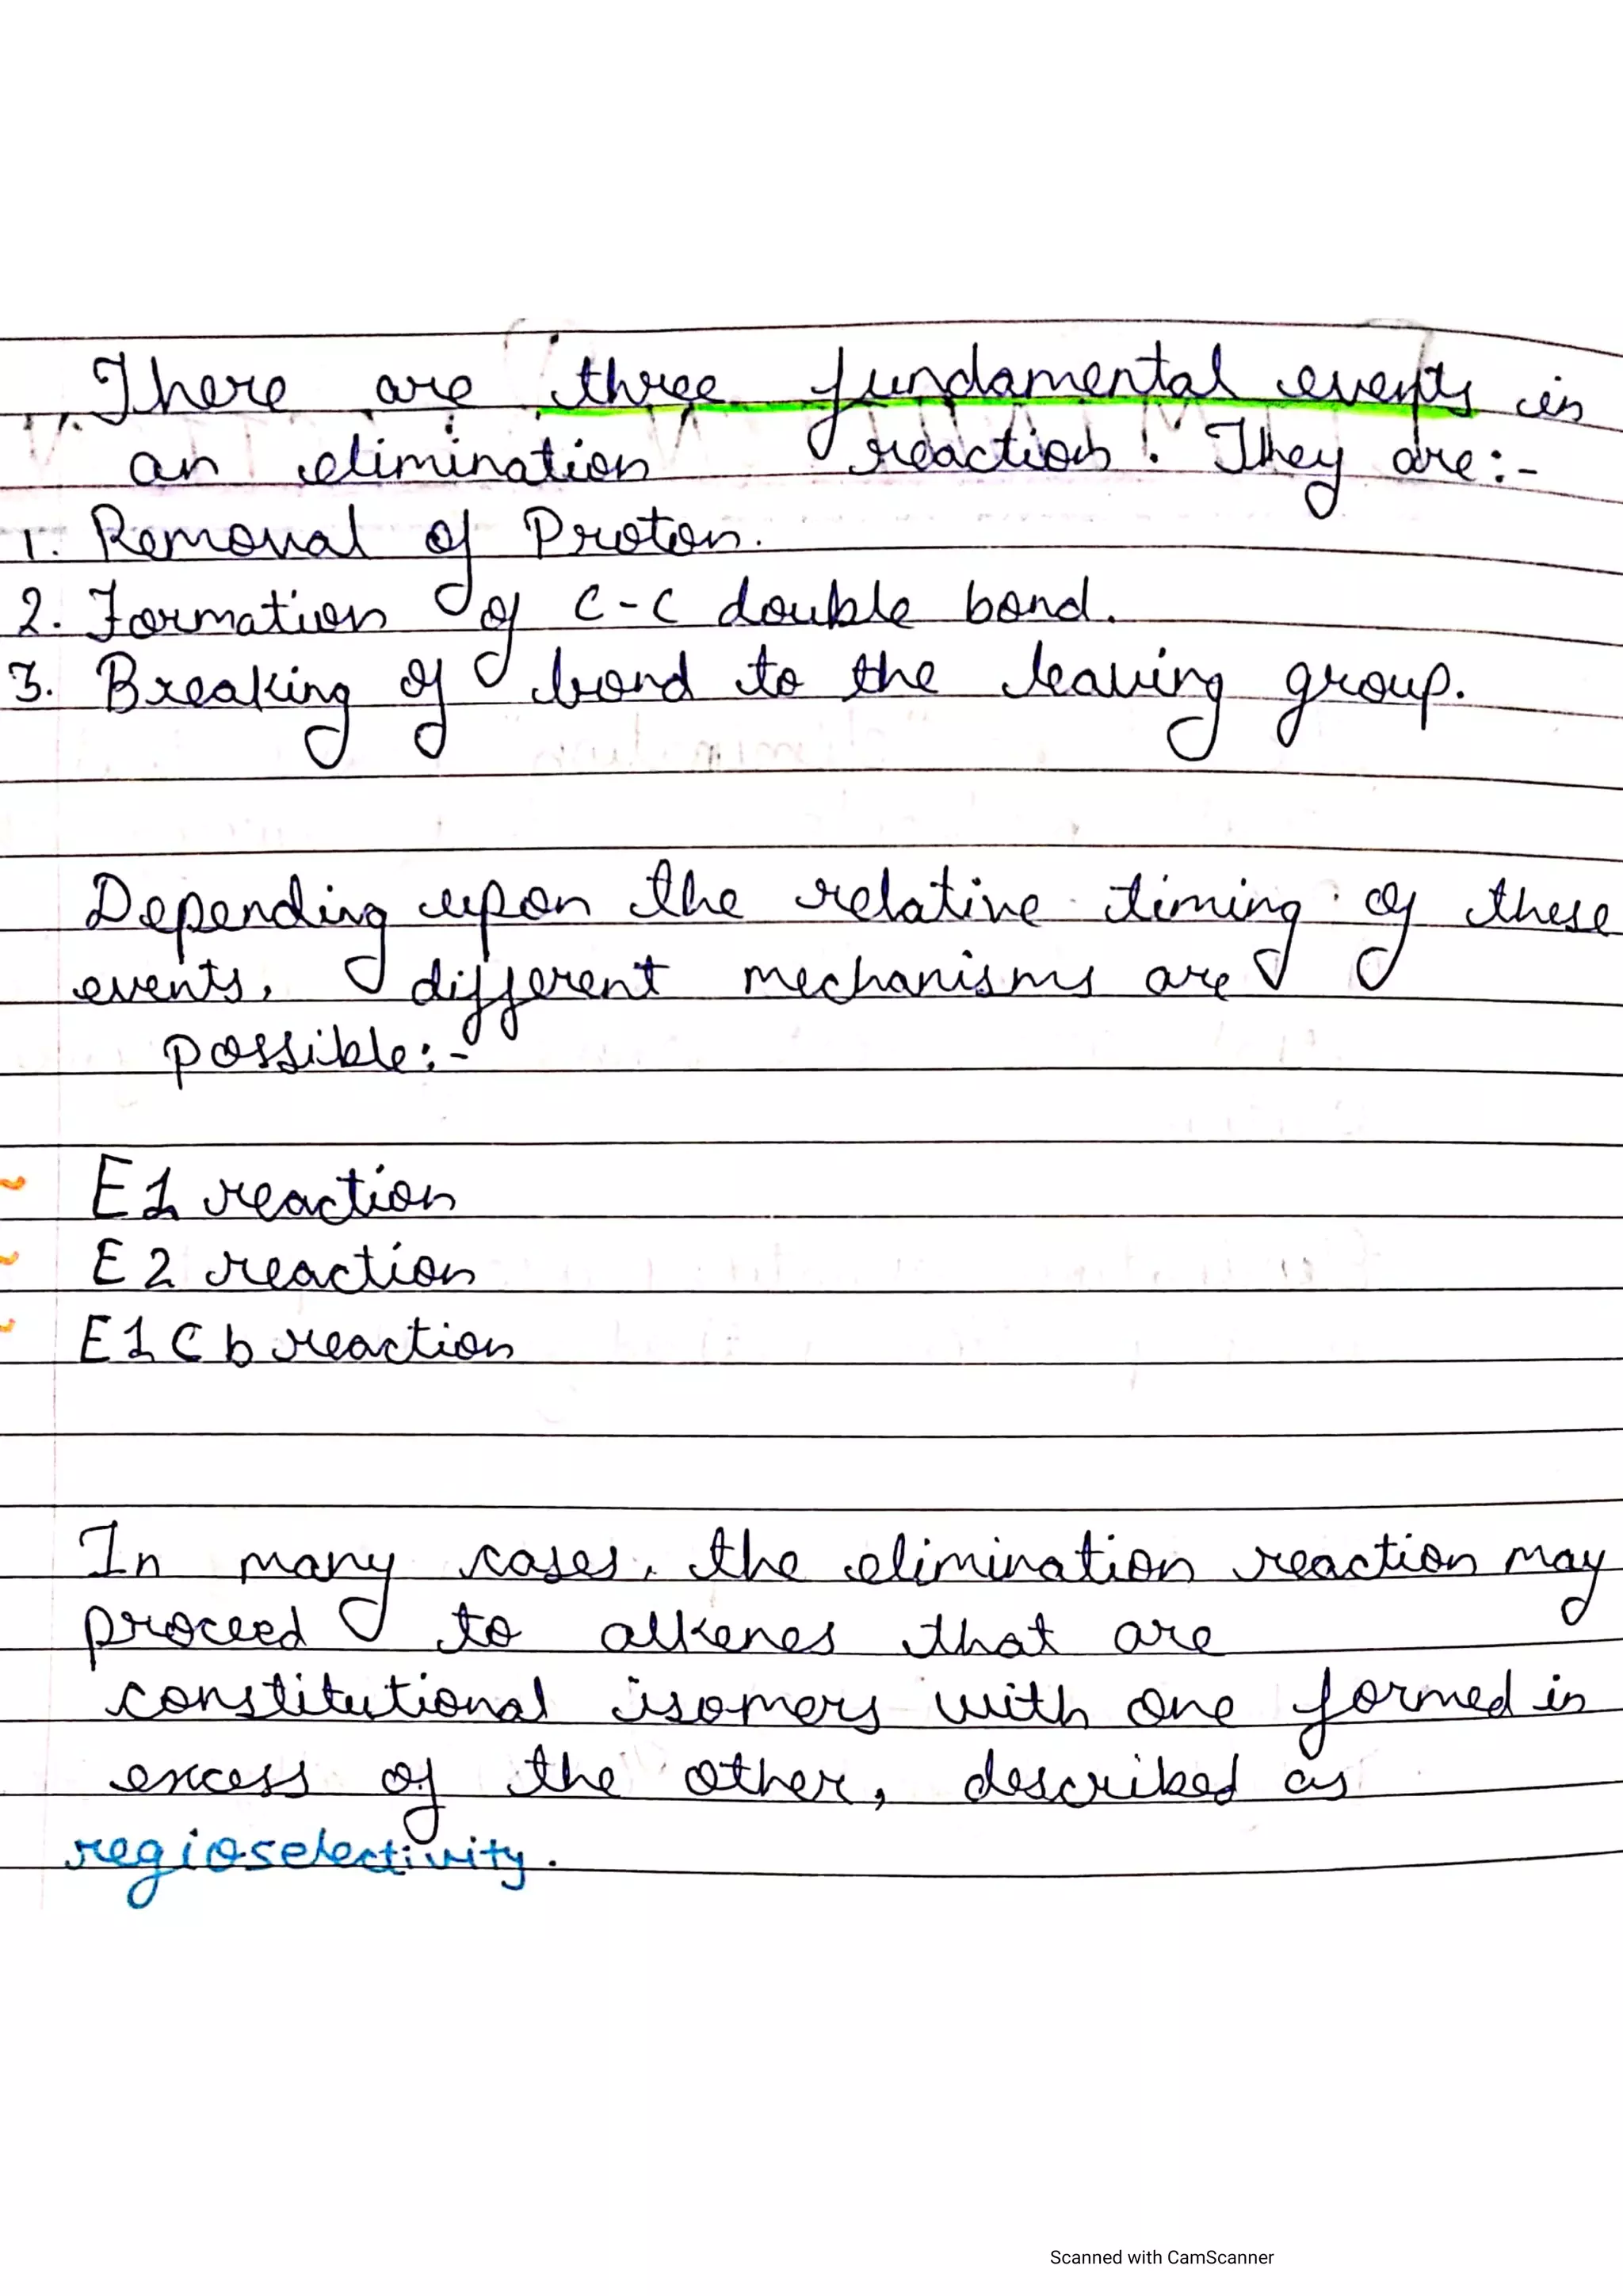 There are three fundamental events in
an elimination reaction. They are:-
1. Removal of Proton.
2. Formation of C-C double bond.
3. Breaking of bond to the leaving group.
Depending upon the relative timing of these
events, different mechanisms are
possible:-
E1 reaction
E2 reaction
E1Cb reaction
In many cases, the elimination reaction may
proceed to alkenes that are
constitutional isomers with one formed in
excess of the other, described as
regioselectivity.
Scanned with CamScanner